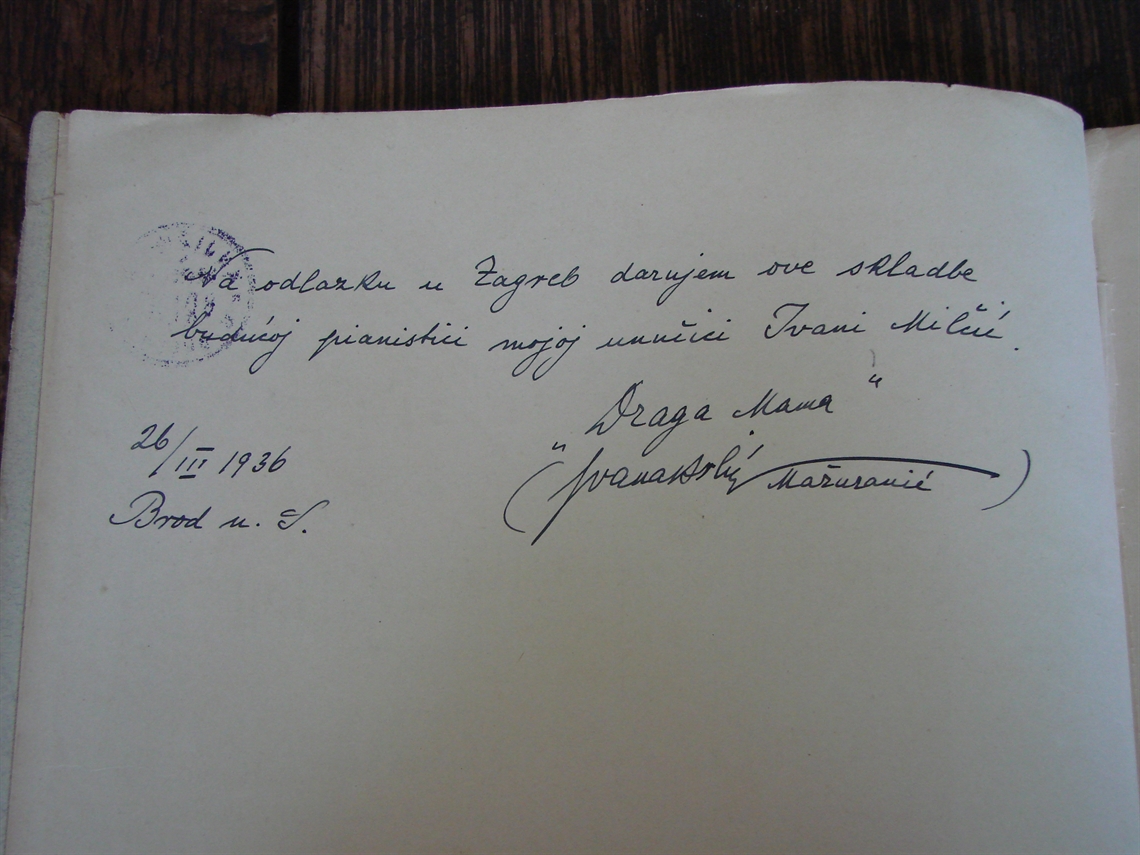 Na odlazku u Zagreb darujem ove skladbe
budućoj pianistici mojoj unučici Ivani Milčić.
„Draga Mama"
26/III 1936
(Ivana Brlić Mažuranić)
Brod n. S.